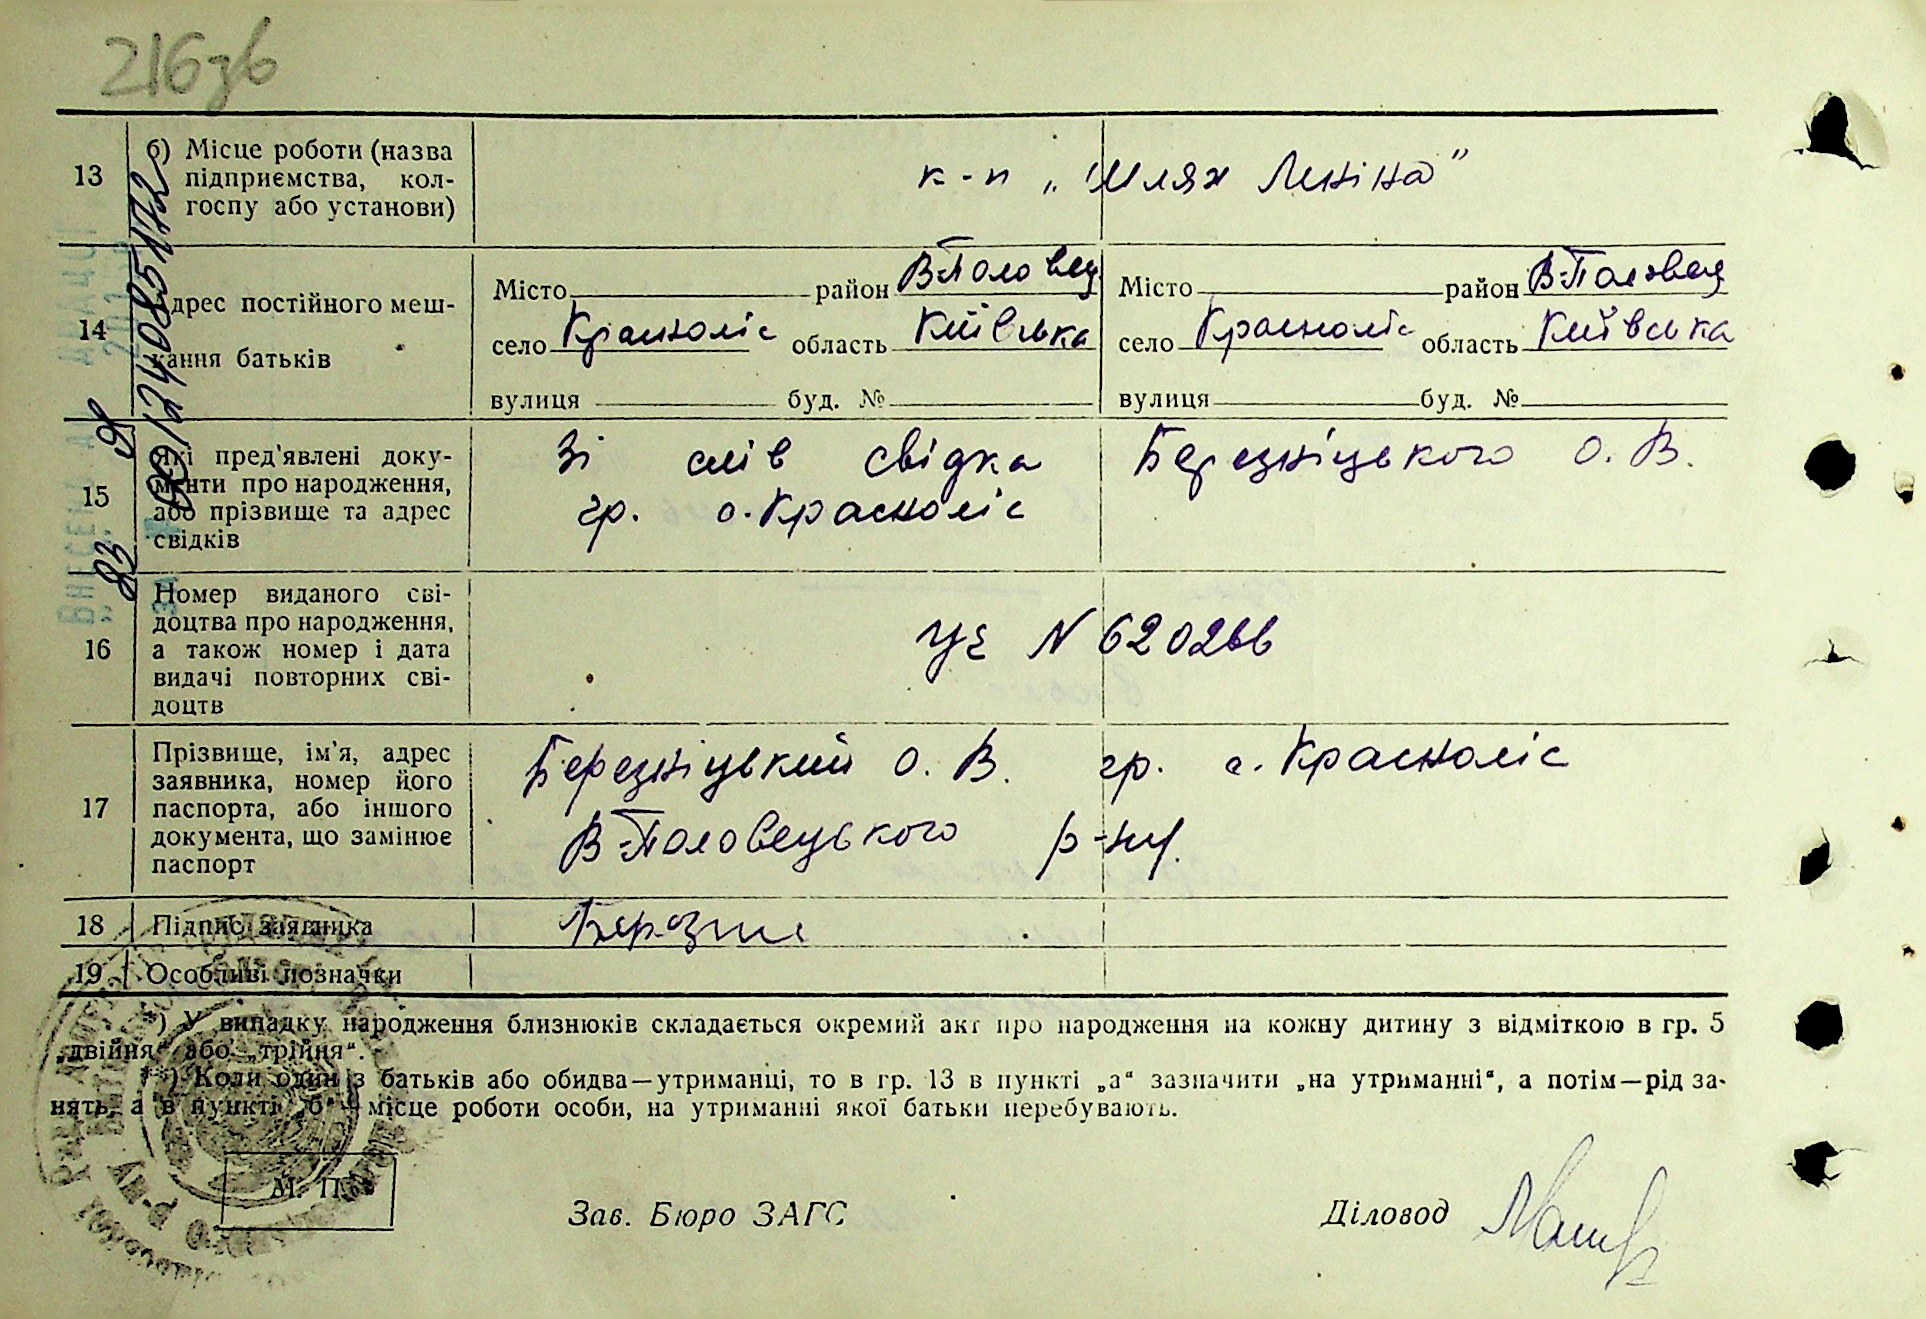 216зв
13
б) Місце роботи (назва
підприємства, кол-
госпу або установи)
к-п „Шлях Леніна"
14
Адрес постійного меш-
кання батьків
Місто район В-Половец
село Красноліс область Київська
вулиця буд. №
Місто район В-Половец
село Красноліс область Київська
вулиця буд. №
15
Які пред'явлені доку-
менти про народження,
або прізвище та адрес
свідків
Зі слів свідка Березніцького О. В.
гр. с. Красноліс
16
Номер виданого сві-
доцтва про народження,
а також номер і дата
видачі повторних сві-
доцтв
N 620266
17
Прізвище, ім'я, адрес
заявника, номер його
паспорта, або іншого
документа, що замінює
паспорт
Березніцький О. В. гр. с. Красноліс
В-Половецького р-ну.
18
Підпис заявника
19
Особливі позначки
*) У випадку народження близнюків складається окремий акт про народження на кожну дитину з відміткою в гр. 5
„двійня“ або „трійня“.
**) Коли один з батьків або обидва—утриманці, то в гр. 13 в пункті „а“ зазначити „на утриманні“, а потім—рід за-
нять, а в пункті „б“—місце роботи особи, на утриманні якої батьки перебувають.
М. П.
Зав. Бюро ЗАГС
Діловод